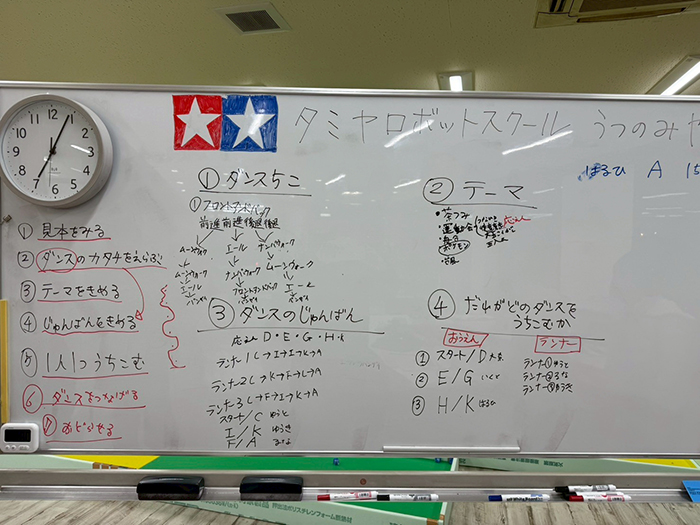 タミヤロボットスクール うつのみや
はるひ A
12 1 2 3 4 5 6 7 8 9 10 11
① 見本をみる
② ダンスのカタチをえらぶ
③ テーマをきめる
④ じゅんばんをきめる
⑤ 1人1つうちこむ
⑥ ダンスをつなげる
⑦
① ダンスちこ
① フロントアンドバック
前進前進後退後退
ムーンウォーク エール ナンバウォーク
ムーンウォーク ナンバウォーク ムーンウォーク
エール フロントアンドバック エール
バンザイ バンザイ バンザイ
② テーマ
・茶つみ
・運動会 応えん
ポケモン
③ ダンスのじゅんばん
応えん D・E・G・H・K
ランナー1 C→I→I→K→A
ランナー2 C→K→F→C→A
ランナー3 C→F→I→K→A
スタート/C ゆうと
I/K ゆうき
F/A
④ だれがどのダンスを
うちこむか
おうえん ランナー
① スタート/D
② E/G
③ H/K はるひ
ランナー① ゆうと
ランナー②
ランナー③ ゆうき